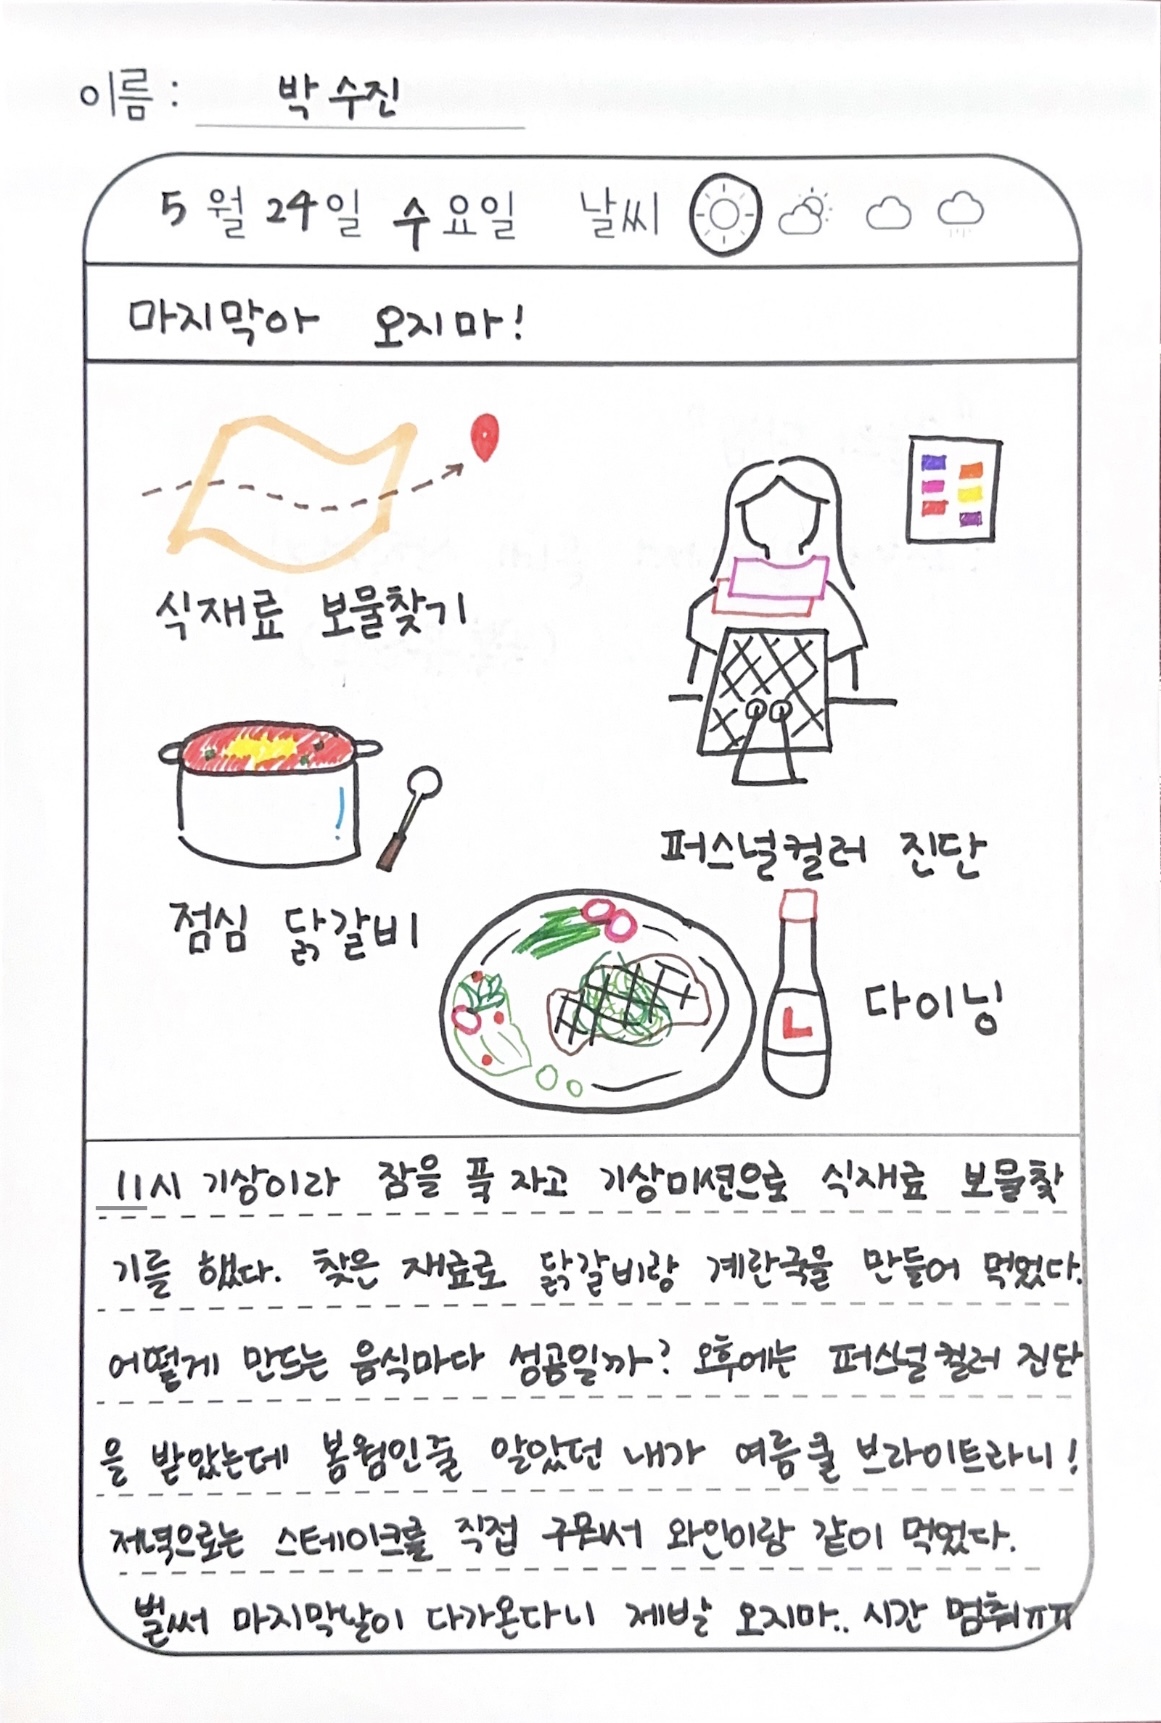 이름: 박수진
5월 24일 수요일 날씨
마지막아 오지마!
식재료 보물찾기
퍼스널컬러 진단
점심 닭갈비
L
다이닝
11시 기상이라 잠을 푹 자고 기상미션으로 식재료 보물찾
기를 했다. 찾은 재료로 닭갈비랑 계란국을 만들어 먹었다.
어떻게 만드는 음식마다 성공일까? 오후에는 퍼스널컬러 진단
을 받았는데 봄웜인줄 알았던 내가 여름쿨 브라이트라니!
저녁으로는 스테이크를 직접 구워서 와인이랑 같이 먹었다.
벌써 마지막날이 다가온다니 제발 오지마.. 시간 멈춰ㅠㅠ